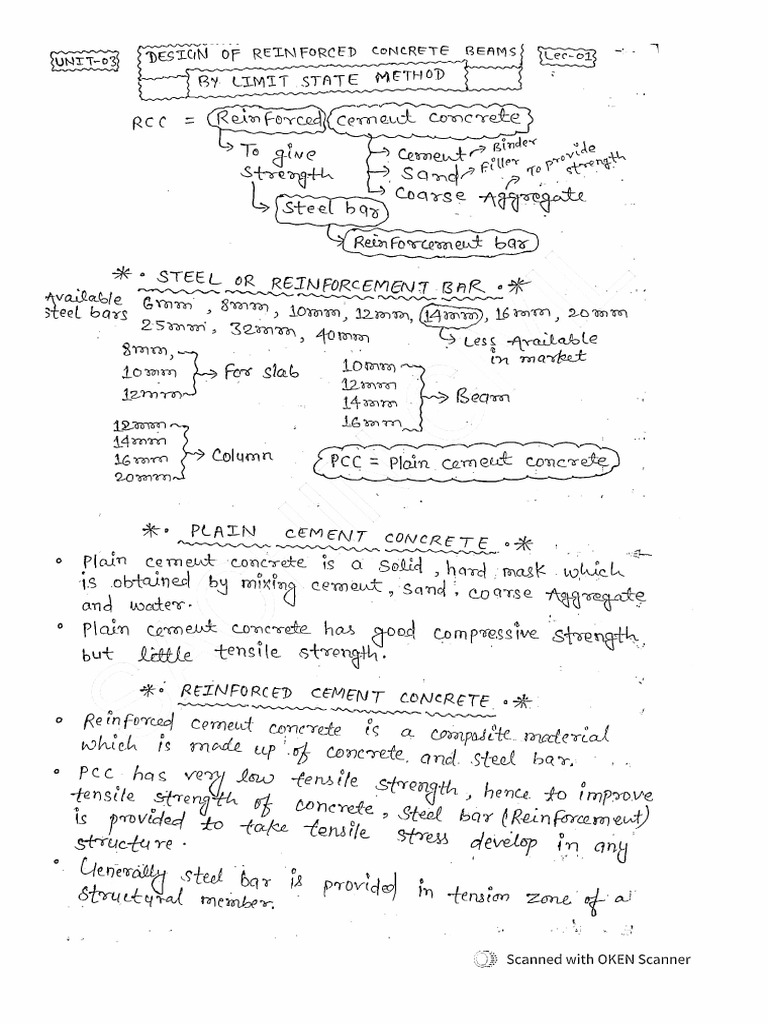 UNIT-03
DESIGN OF REINFORCED CONCRETE BEAMS
Lec-01
BY LIMIT STATE METHOD
RCC = Reinforced cement concrete
To give strength
Steel bar
Reinforcement bar
Cement → Binder
Sand → Filler
Coarse Aggregate → To provide strength
*. STEEL OR REINFORCEMENT BAR .*
Available steel bars
6mm, 8mm, 10mm, 12mm, 14mm, 16mm, 20mm
25mm, 32mm, 40mm
Less Available in market
8mm,
10mm → For slab
12mm
10mm
12mm
14mm → Beam
16mm
12mm
14mm
16mm → Column
20mm
PCC = Plain cement concrete
*. PLAIN CEMENT CONCRETE .*
• Plain cement concrete is a solid, hard mask which
is obtained by mixing cement, sand, coarse Aggregate
and water.
• Plain cement concrete has good compressive strength,
but little tensile strength.
*. REINFORCED CEMENT CONCRETE .*
• Reinforced cement concrete is a composite material
which is made up of concrete and steel bar.
• PCC has very low tensile strength, hence to improve
tensile strength of concrete, steel bar (Reinforcement)
is provided to take tensile stress develop in any
structure.
• Generally steel bar is provided in tension zone of a
structural member.
Scanned with OKEN Scanner